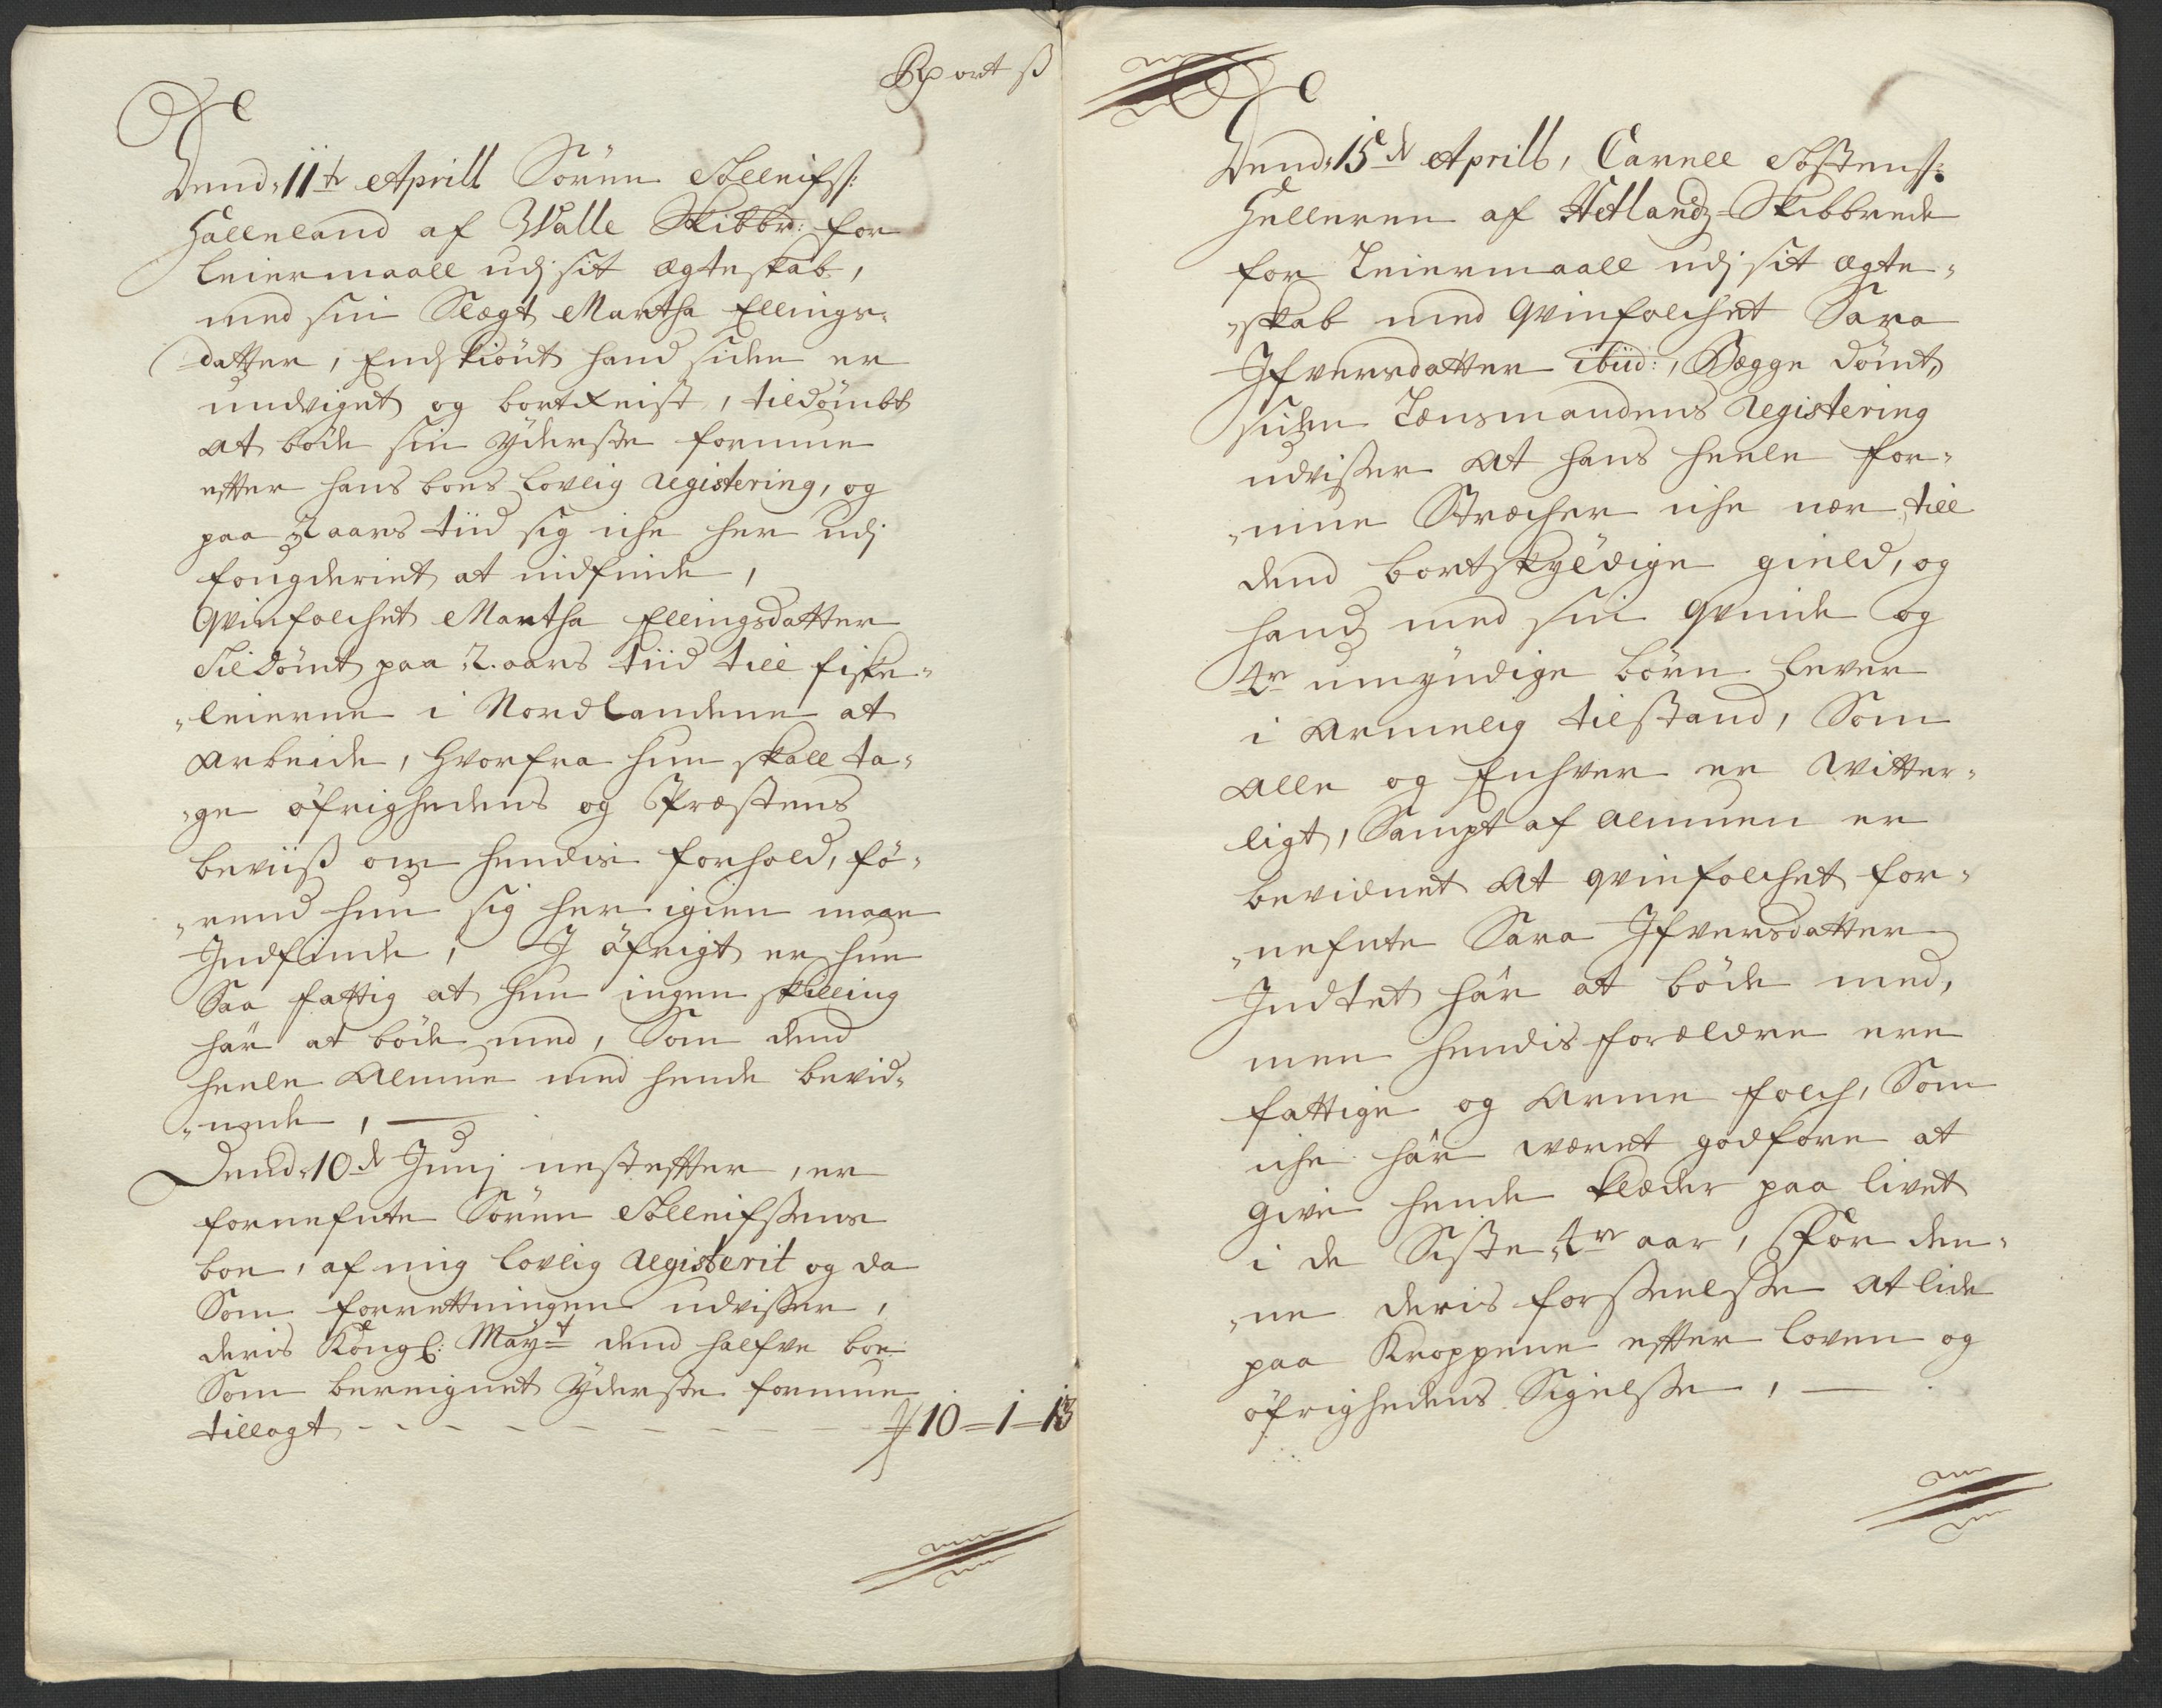 Rp ort ß
Dend 11te Aprill Sören Tolleifs:
Hälleland af Walle Skibbr: for
leiermaall udj sit ægteskab,
med sin Slægt Martha Ellings-
datter, Endskiönt hand siden er
undviget og bortreist, tildömbt
at böde sin yderste formue
efter hans boes lovlig Registering, og
paa 3 aars tiid sig iche her udj
fougderiet at indfinde,
Qvinfolchet Martha Ellingsdatter
Tildömt paa 2. aars tiid till fiske-
leierne i Nordlandene at
Arbeide, hvorfra hun skall ta-
ge öfrighedens og Præstens
beviiß om hendis forhold, fö-
rend hun sig her igien maae
Indfinde, I öfrigt er hun
Saa fattig at hun ingen skilling
hår at böde med, Som dend
heele Almue med hende bevid-
nede,
Dend 10de Junj nestefter, er
fornefnte Sören Tolleifsens
boe, af mig lovlig Registerit og da
Som forretningen udviser,
deris Kongl: Mayt dend halfve boe
Som bereignet yderste formue
tillagt - - - - - - - - 10 = 1 = 13
Dend 15de Aprill, Carnell Tostens:
Helleren af Hetlandz=Skibbrede
for Leiermaall udj sit ægte-
skab med Qvinfolchet Sara
Ifversdatter ibiid:, Begge dömt,
siden Lensmandens Registering
udviser At hans heele for-
mue Strecher iche nær till
dend bortskyldige gield, og
hand med sin Qvinde og
4re umyndige börn lever
i Armelig tilstand, Som
Alle og Enhver er witter-
ligt, Sampt af Almuen er
bevidnet At qvinfolchet for-
nefnte Sara Ifversdatter
Indtet hår at böde med,
men hendis forældre ere
fattige og Arme folch, Som
iche hår været godfore at
give hende klæder paa livet
i de Siste 4re aar, For den-
ne deris forseelse At lide
paa Kroppene efter loven og
öfrighedens Sigelse,